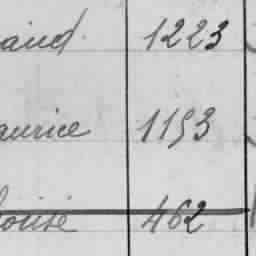 aud. 1223
aurice 1153
462